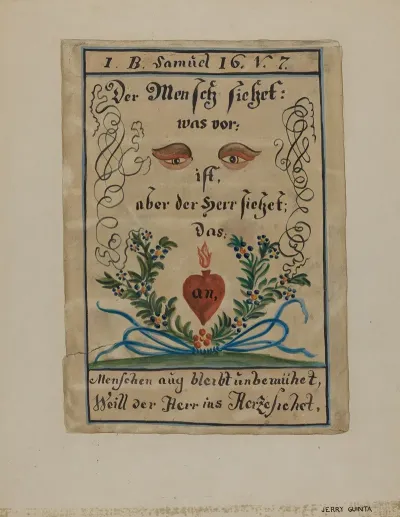 1. B. Samuel 16. V. 7.
Der Mensch siehet:
was vor:
ist,
aber der Herr siehet:
Das:
an,
Menschen aug bleibt unbemühet,
Weill der Herr ins Herze siehet.
JERRY GUINTA